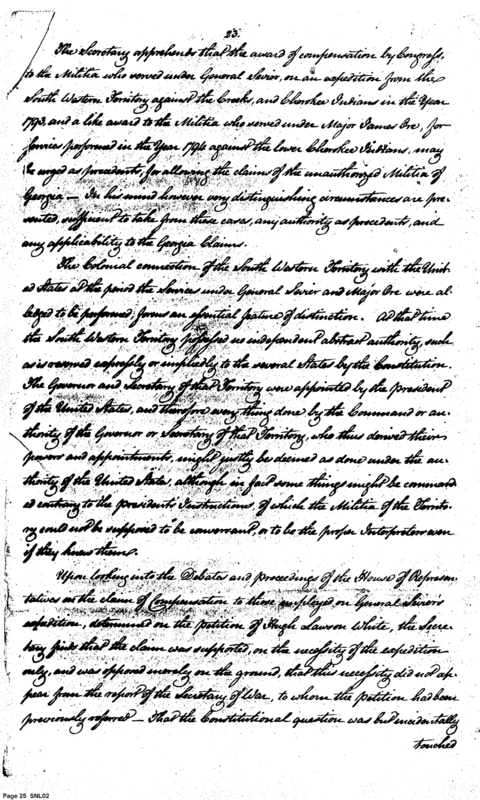 23.
The Secretary apprehends that the award of compensation by Congress,
to the Militia who served under General Sevier, on an expedition from the
South Western Territory against the Creeks, and Cherokee Indians in the Year
1793, and a like award to the Militia who served under Major James Ore, for
services performed in the Year 1794 against the lower Cherokee Indians, may
be urged as precedents, for allowing the claims of the unauthorized Militia of
Georgia — In his mind however very distinguishing circumstances are pre-
sented, sufficient to take from these cases, any authority as precedents, and
any applicability to the Georgia Claims.
The Colonial connection of the South Western Territory with the Unit-
ed States at the period the Services under General Sevier and Major Ore were al-
ledged to be performed, forms an essential feature of distinction. At that time
the South Western Territory possessed no independent abstract authority, such
as is reserved expressly or impliedly to the several States by the Constitution.
The Governor and Secretary of that Territory were appointed by the President
of the United States, and therefore every thing done by the Command or au-
thority of the Governor or Secretary of that Territory, who thus derived their
powers and appointments, might justly be deemed as done under the au-
thority of the United States, although in fact some things might be command
ed contrary to the president's Instructions, of which the Militia of the Territo-
ry could not be supposed to be conversant, or to be the proper Interpreters even
if they knew them.
Upon looking into the Debates and proceedings of the House of Represen-
tatives on the claim of Compensation to those employed on General Sevier's
expedition, determined on the petition of Hugh Lawson White, the Secre-
tary finds that the claim was supported, on the necessity of the expedition
only, and was opposed merely on the ground, that this necessity did not ap-
pear from the report of the Secretary of War, to whom the petition had been
previously referred — That the Constitutional question was but incidentally
touched
Page 25 SNL02